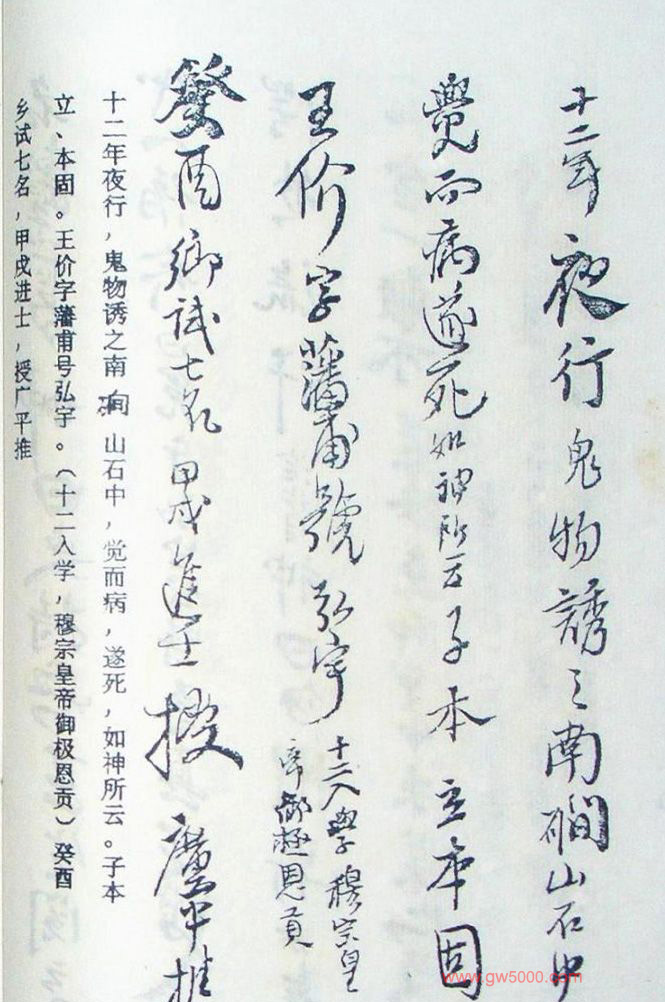 十二年夜行鬼物誘之南磵山石中
覺而病遂死如神所云子本立本固
王价字藩甫號弘宇十二入學穆宗皇
帝御極恩貢
癸酉鄉試七名甲戌進士授廣平推
十二年夜行，鬼物诱之南 山石中，觉而病，遂死，如神所云。子本
立、本固。王价字藩甫号弘宇。（十二入学，穆宗皇帝御极恩贡）癸酉
乡试七名，甲戌进士，授广平推
www.gw5000.com